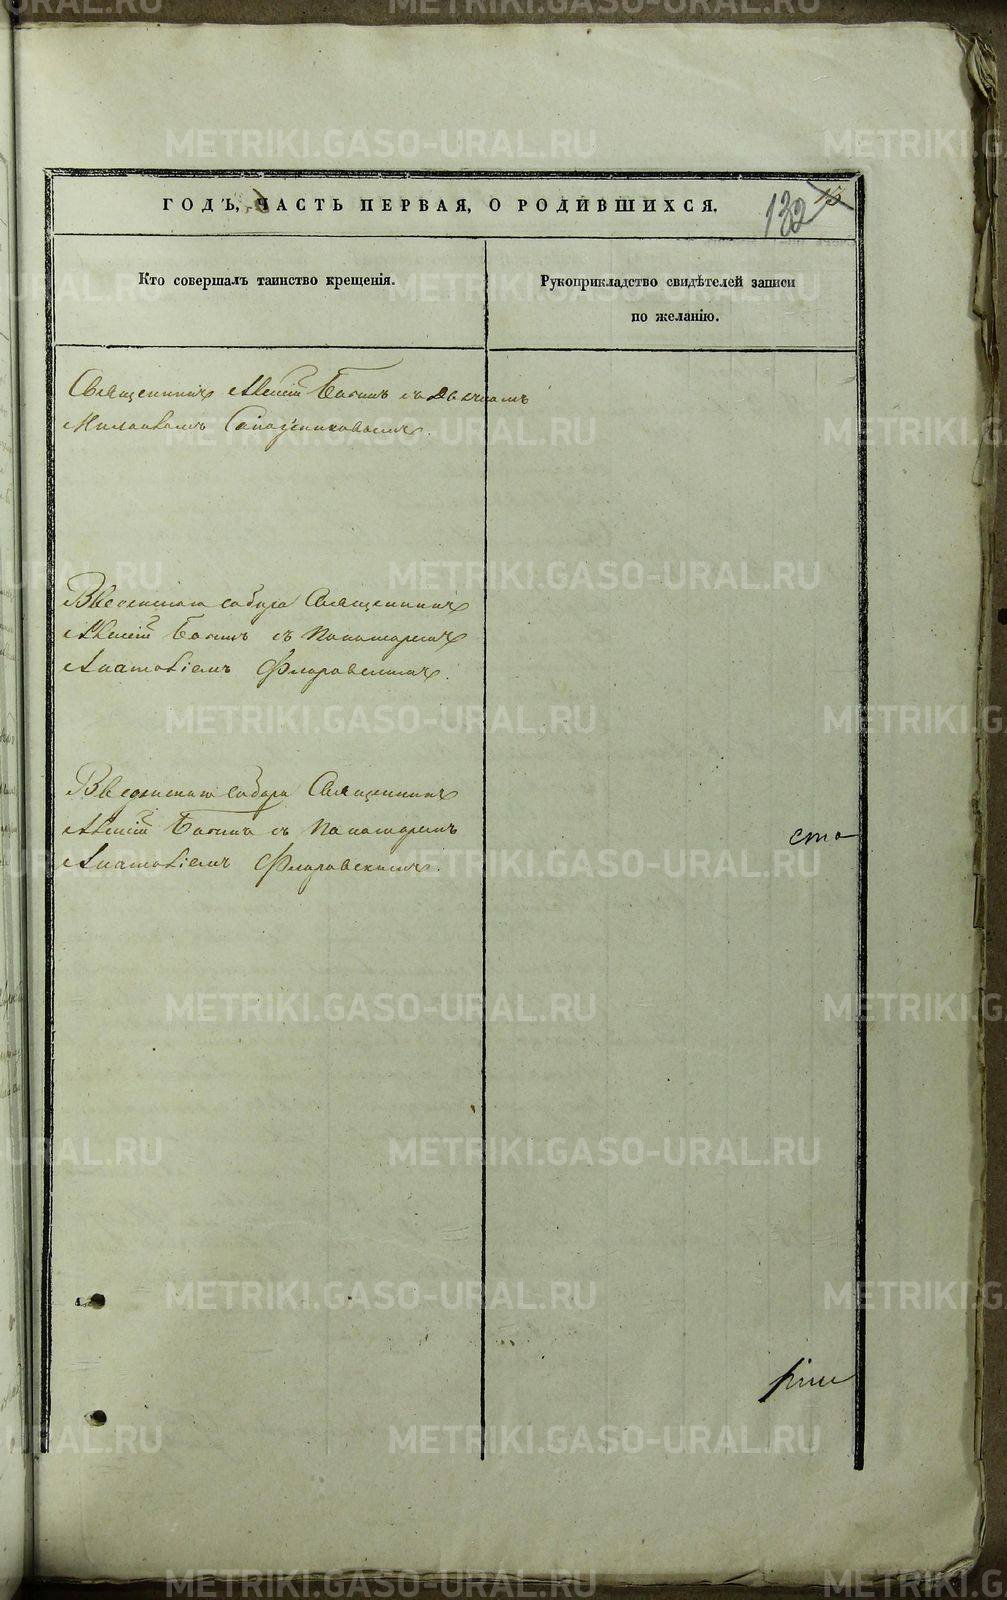 ГОДЪ, ЧАСТЬ ПЕРВАЯ, О РОДИВШИХСЯ.
132
Кто совершалъ таинство крещенія.
Рукоприкладство свидѣтелей записи
по желанію.
Священникъ Алексій съ Дьячкомъ
Николаемъ Сапожниковымъ.
Введенскаго собора Священникъ
Алексій съ Пономаремъ
Анатоліемъ Флоровскимъ.
Введенскаго собора Священникъ
Алексій съ Пономаремъ
Анатоліемъ Флоровскимъ.
сто
METRIKI.GASO-URAL.RU